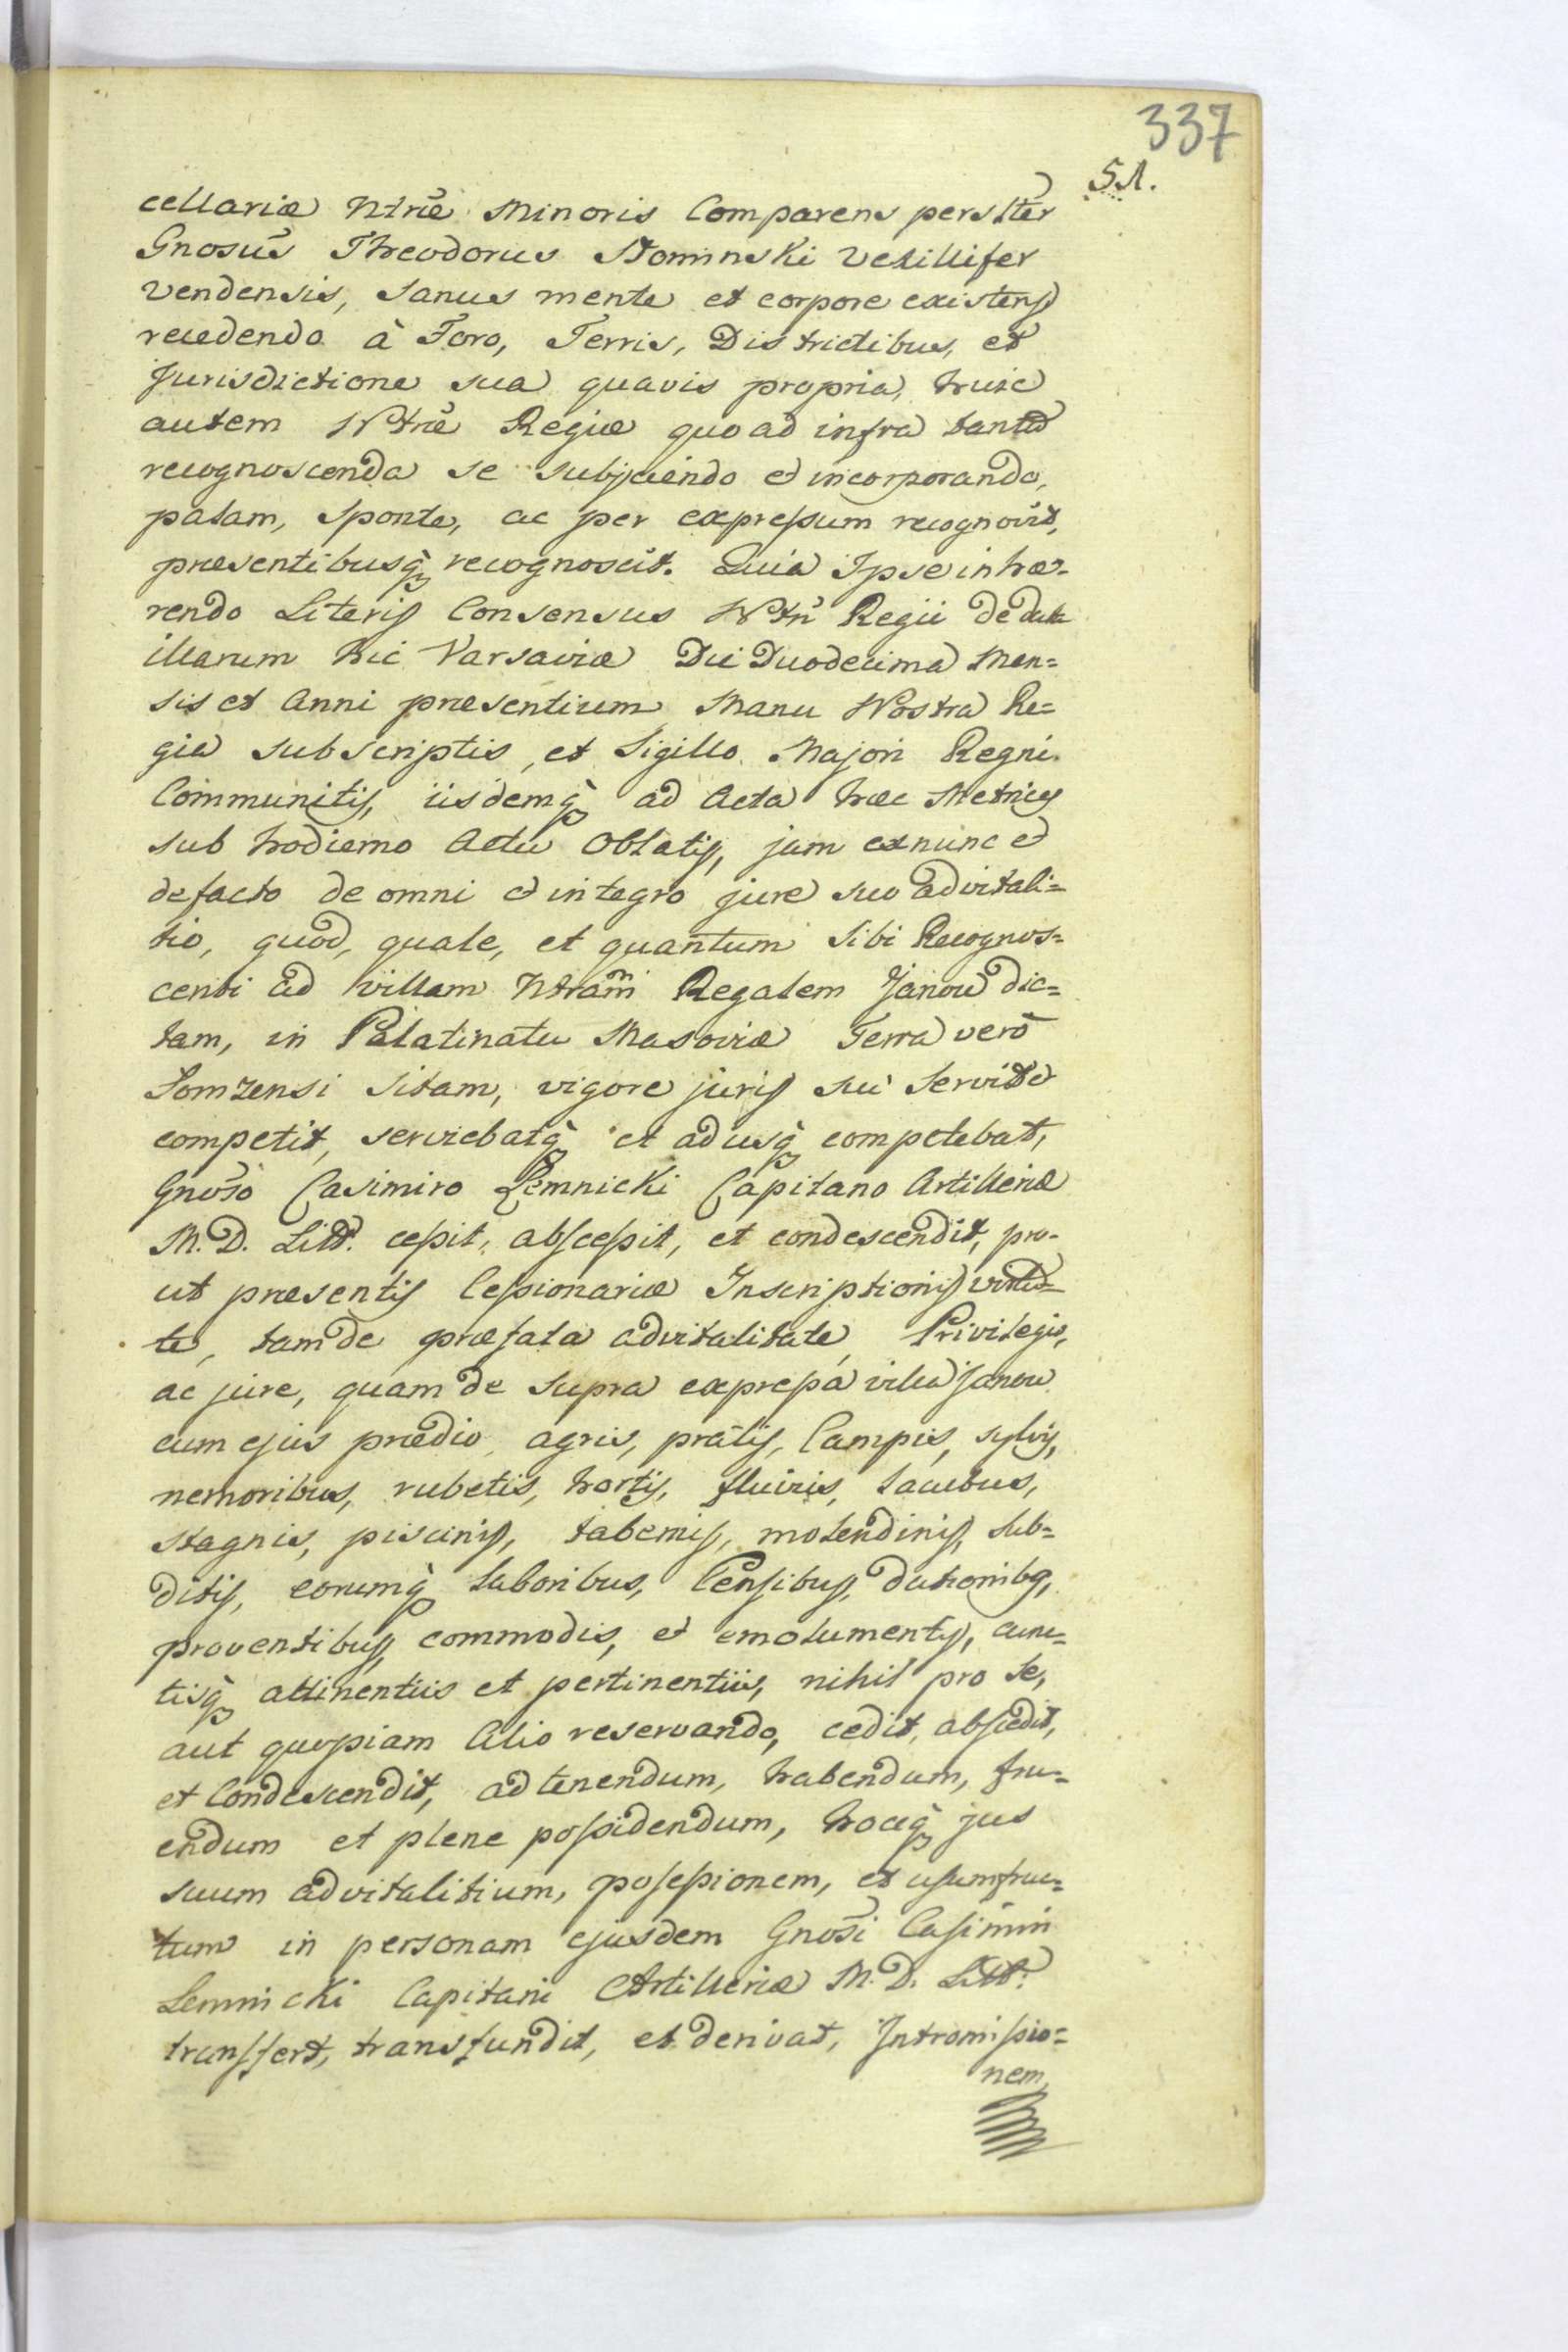 337
51.
cellariæ Ntræ Minoris Comparens persltẽr
Gnosus Theodorus Słominski Vexillifer
Vendensis, sanus mente et corpore existens
recedendo à Foro, Terris, Districtibus, et
Jurisdictione sua quavis propria, huic
autem Ntræ Regiæ quoad infra tanta
recognoscenda se subjiciendo et incorporando,
palam, sponte, ac per expressum recognovit,
præsentibusq̀ recognoscit. Quia Ipse inhæ-
rendo Literis Consensus Ntri Regii de data
illarum hic Varsaviæ Die Duodecima Men=
sis et Anni præsentium Manu Nostra Re=
gia subscriptis, et Sigillo Majori Regni
Communitis, iisdemq̀ ad Acta hæc Metrices
sub hodierno Actu Oblatis, jam exnunc et
defacto de omni et integro jure suo advitali=
tio, quod, quale, et quantum sibi Recognos=
centi ad villam Ntram Regalem Janow dic=
tam, in Palatinatu Masoviæ Terra verò
Lomzensi sitam, vigore juris sui servit et
competit, serviebatq̀ et adusq̀ competebat,
Gnoso Casimiro Lemnicki Capitano Artilleriæ
M. D. Litt. cessit, abscessit, et condescendit, pro-
ut præsentis Cessionariæ Inscriptionis virtu=
te, tam de præfata advitalitate, Privilegio,
ac jure, quam de supra expressa villa Janow
cum ejus prædio agris, pratis, Campis, sylvis,
nemoribus, rubetis, hortis, fluviis, lacubus,
stagnis, piscinis, tabernis, molendinis, sub=
ditis, eorumq̀ laboribus, Censibus, dationibq,
proventibus, commodis, et emolumentis, cunc=
tisq̀ attinentiis et pertinentiis, nihil pro se,
aut quopiam Alio reservando, cedit, abscedit,
et Condescendit, ad tenendum, habendum, fru=
endum et plene possidendum, hocq̀ jus
suum advitalitium, possessionem, et usumfruc=
tum in personam ejusdem Gnosi Casimiri
Lemnicki Capitani Artilleriæ M. D. Litt.
transfert, transfundit, et derivat, Intromissio=
nem